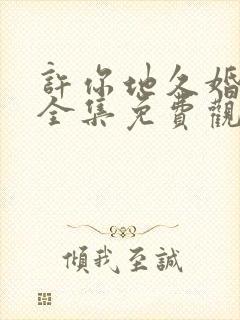 許你地久婚
全集免費觀
傾我至誠